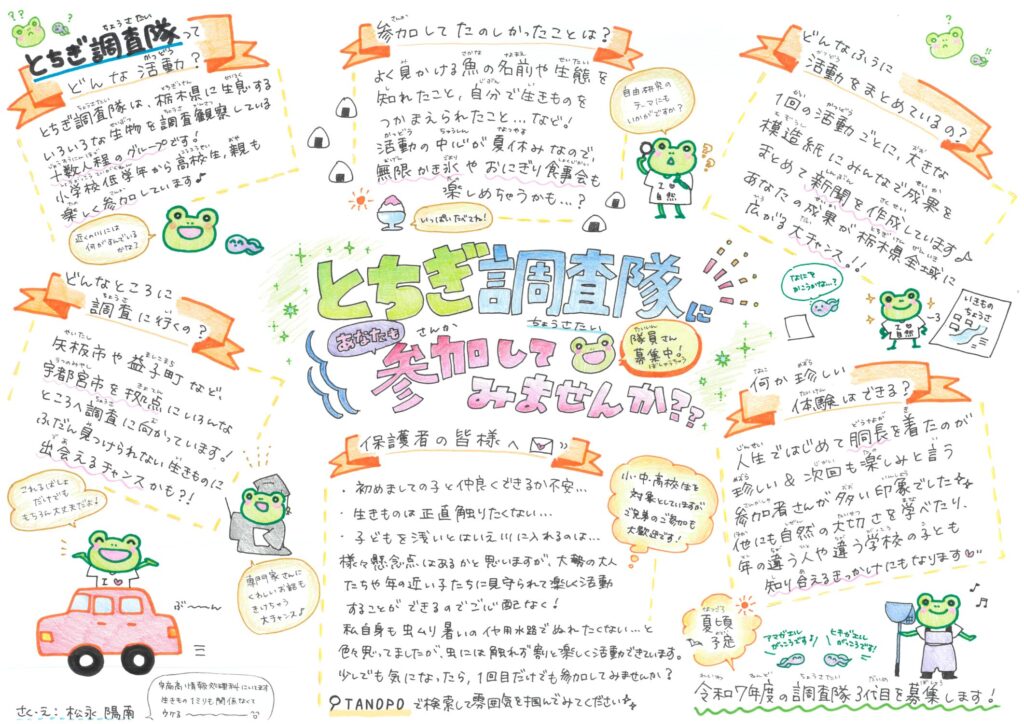 とちぎ調査隊って
どんな活動?
とちぎ調査隊は、栃木県に生息する
いろいろな生物を調査観察している
十数人程のグループです!
小学校低学年から高校生、親も
楽しく参加しています♪
近くの川には
何がすんでいる
かな?
参加してたのしかったことは?
よく見かける魚の名前や生態を
知れたこと、自分で生きものを
つかまえられたこと…など!
活動の中心が夏休みなので
無限かき氷やおにぎり食事会も
楽しめちゃうかも…?
いっぱいたべてね!
自由研究の
テーマにも
いかがですか?
I ♥
自然
どんなふうに
活動をまとめているの?
1回の活動ごとに、大きな
模造紙にみんなで成果を
まとめて新聞を作成しています♪
あなたの成果が栃木県全域に
広がる大チャンス!!
なにを
かこうかな…?
I ♥
自然
いきもの
ちょうさ
とちぎ調査隊に
ちょうさたい
あなたも
さんか
参加して
みませんか??
隊員さん
募集中。
どんなところに
調査に行くの?
矢板市や益子町など、
宇都宮市を拠点にいろんな
ところへ調査に向かっています!
ふだん見つけられない生きものに
出会えるチャンスかも?!
これるばしょ
だけでも
もちろん大丈夫だよ!
I ♥
ぶ〜〜ん
専門家さんに
くわしいお話も
きけちゃう
大チャンス♪
保護者の皆様へ
・初めましての子と仲良くできるか不安…
・生きものは正直触りたくない…
・子どもを浅いとはいえ川に入れるのは…
様々懸念点はあるかと思いますが、大勢の大人
たちや年の近い子たちに見守られて楽しく活動
することができるのでご心配なく!
私自身も虫ムリ暑いのイヤ用水路でぬれたくない…と
色々思ってましたが、虫には触れず割と楽しく活動できています。
少しでも気になったら、1回目だけでも参加してみませんか?
TANOPOで検索して雰囲気を掴んでみてください
小・中・高校生を
対象としていますが
ご兄弟のご参加も
大歓迎です!
何か珍しい
体験はできる?
人生ではじめて胴長を着たのが
珍しい&次回も楽しみと言う
参加者さんが多い印象でした
他にも自然の大切さを学べたり、
年の違う人や違う学校の子とも
知り合えるきっかけにもなります
夏頃
予定
アマガエル
がっこうです!
ヒキガエル
がっこうです!
令和7年度の調査隊3代目を募集します!
さく・え:松永 陽南